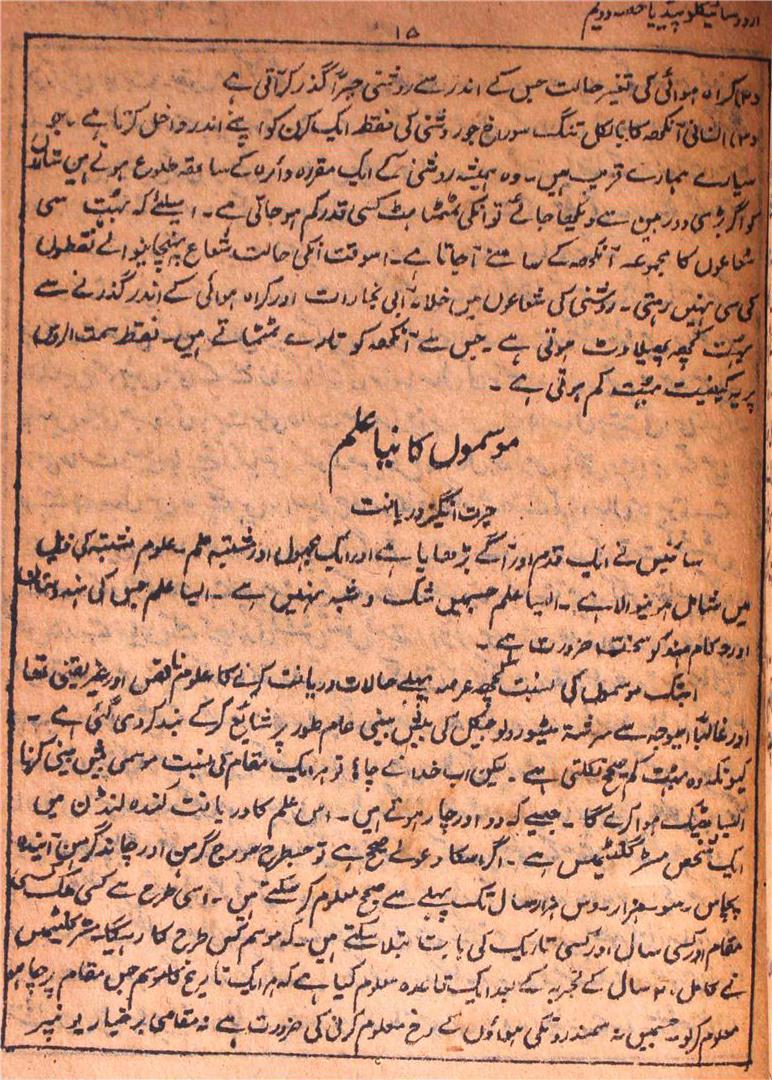 اردو سائیکلوپیڈیا حصہ دویم
۱۵
(۲) کراہ ہوائی کی تغیر حالت جس کے اندر سے روشنی جبراً گذر کر آتی ہے
(۳) انسانی آنکھ کا بالکل تنگ سوراخ جو روشنی کی فقط ایک کرن کو اپنے اندر داخل کرتا ہے ۔ جو
سیارے ہمارے قریب ہیں ۔ وہ ہمیشہ روشنی کے ایک مقررہ دائرہ کے ساتھ طلوع ہوتے ہیں شاروں
کو اگر بڑی دوربین سے دیکھا جائے تو انکی ٹمٹماہٹ کسی قدر کم ہو جاتی ہے ۔ اسلئے کہ بہت سی
شعاعوں کا مجموعہ آنکھ کے سامنے آجاتا ہے ۔ اسوقت انکی حالت شعاع پہنچانیوالے نقطوں
کی سی نہیں رہتی ۔ روشنی کی شعاعوں میں خلا آبی بخارات اور کراہ ہوائی کے اندر گذرنے سے
بہت کچھ پھیلاوٹ ہوتی ہے ۔ جس سے آنکھ کو تارے ٹمٹماتے ہیں ۔ نقطہ سمت الراس
پر یہ کیفیت بہت کم ہوتی ہے ۔
موسموں کا نیا علم
حیرت انگیز دریافت
سائنس نے ایک قدم اور آگے بڑھایا ہے اور ایک مجہول اور مشتبہ علم ۔ علوم مشتبہ کی ذیل
میں شامل ہونیوالا ہے ۔ ایسا علم جسمیں شک و شبہ نہیں ہے ۔ ایسا علم جس کی ہندوستان
اور حکام ہند کو سخت ضرورت ہے ۔
ابتک موسموں کی نسبت کچھ عرصہ پہلے حالات دریافت کرنے کا علوم ناقص اور غیر یقینی تھا
اور غالباً اسیوجہ سے سرشتہ میٹیورولوجیکل کی پیش بینی عام طور پر شایع کرکے بند کر دی گئی ہے ۔
کیونکہ وہ بہت کم صحیح نکلتی ہے ۔ لیکن اب خدا نے چاہا تو ہر ایک مقام کی نسبت موسمی پیش بینی کرنا
ایسا ٹھیک ہوا کرے گا ۔ جیسے کہ دو اور دو چار ہوتے ہیں ۔ اس علم کا دریافت کنندہ لنڈن میں
ایک شخص مسٹر ہے ۔ اگر اسکا دعوے صحیح ہے تو جسطرح سورج گرہن اور چاند گرہن آیندہ
پچاس ۔ سو ۔ ہزار ۔ دس ہزار سال تک پہلے سے صحیح معلوم کر سکتے ہیں ۔ اسی طرح سے کسی ملک کسی
مقام اور کسی سال اور کسی تاریک کی بابت بتلا سکتے ہیں ۔ کہ موسم کس طرح کا رہیگا ۔ مسٹر
نے کامل ۲۰ سال کے تجربہ کے بعد ایک قاعدہ معلوم کیا ہے کہ ہر ایک تاریخ کا موسم جس مقام پر چاہو
معلوم کرلو ۔ جسمیں نہ سمندروں کی ہواؤں کے رخ معلوم کرنی کی ضرورت ہے نہ مقامی بر خیار یو نیپر